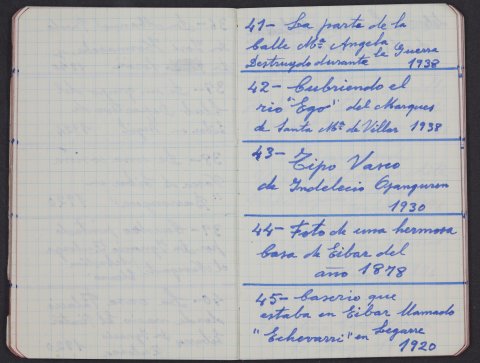 41- La parte de la
Calle Mª Angela
Destruydo durante la Guerra
1938
42- Cubriendo el
rio "Ego" del Marques
de Santa Mª de Villar 1938
43- Tipo Vasco
de Indelecio Ojanguren
1930
44- Foto de una hermosa
Casa de Eibar del
año 1878
45- Caserio que
estaba en Eibar llamado
"Echevarri" en Legarre
1920